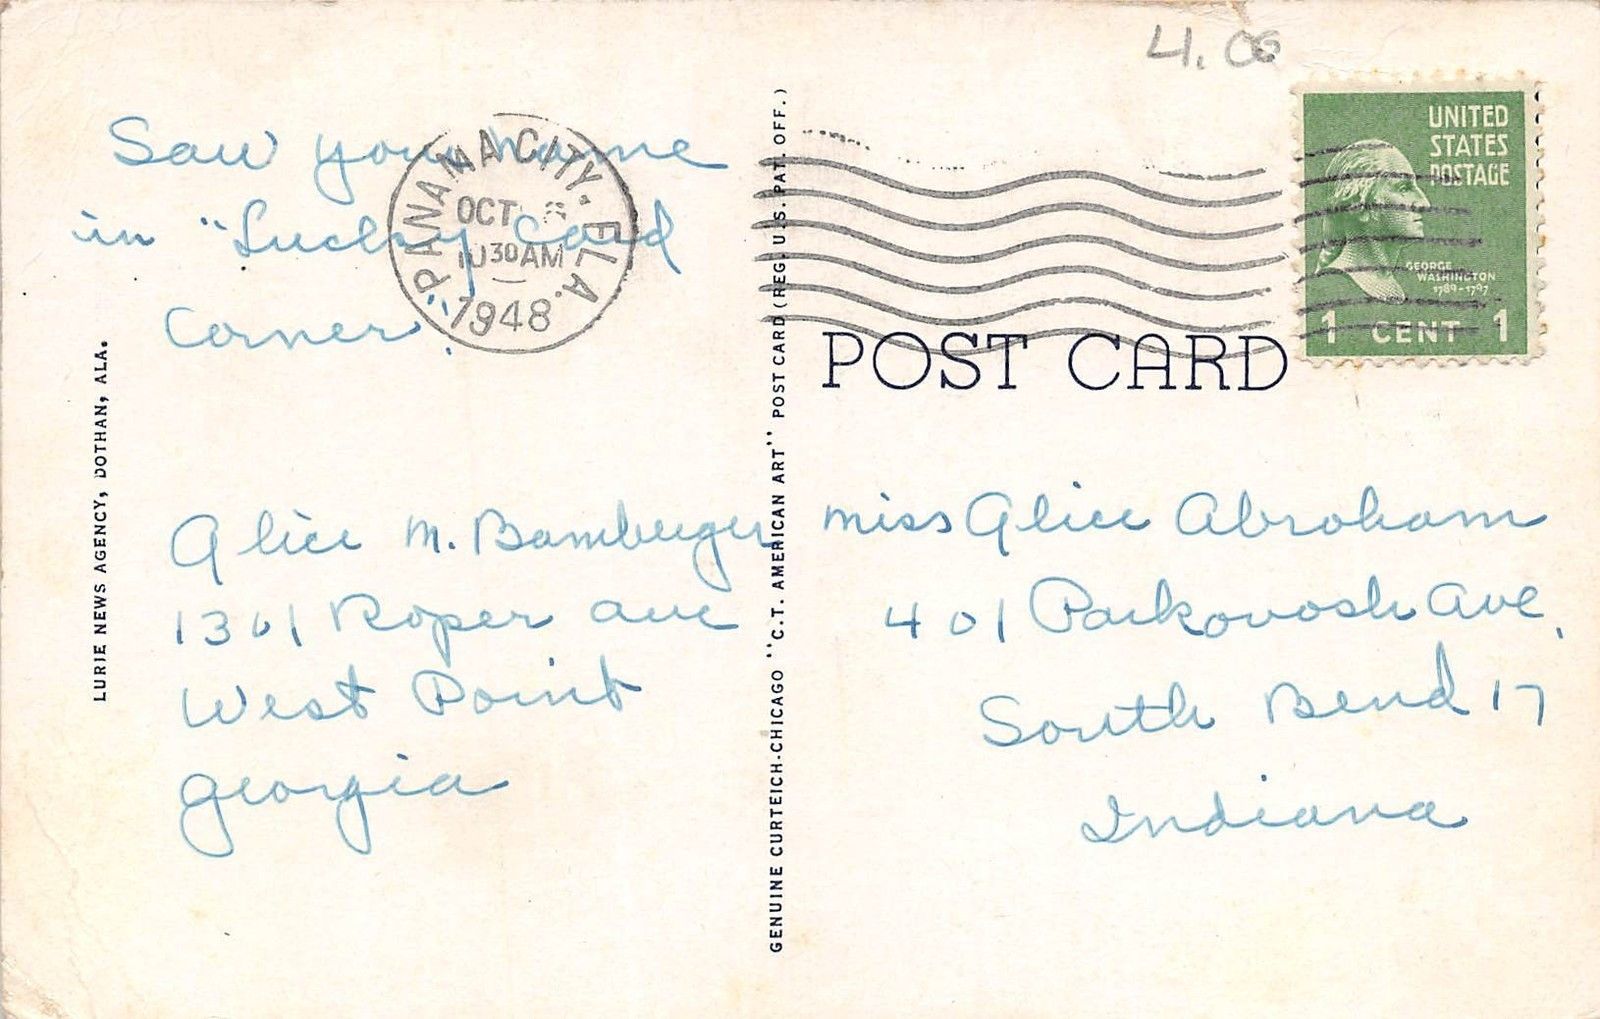 4.00
Saw your name
in "Lucky Card
Corner".
PANAMA CITY. FLA.
OCT
10 30 AM
1948
UNITED
STATES
POSTAGE
GEORGE
WASHINGTON
1789-1797
1 CENT 1
POST CARD
LURIE NEWS AGENCY, DOTHAN, ALA.
Alice M. Bamberger
1301 Roper Ave
West Point
Georgia
GENUINE CURTEICH-CHICAGO "C.T. AMERICAN ART" POST CARD (REG. U.S. PAT. OFF.)
Miss Alice Abraham
401 Parkovash Ave,
South Bend 17
Indiana